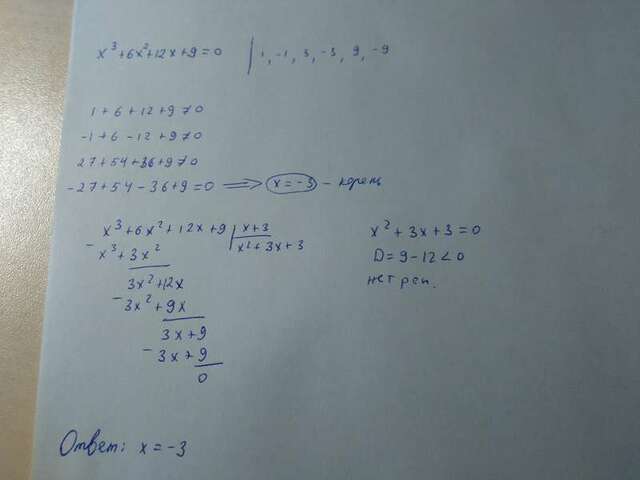 x³+6x²+12x+9=0 | 1, -1, 3, -3, 9, -9
1+6+12+9≠0
-1+6-12+9≠0
27+54+36+9≠0
-27+54-36+9=0 ⟹ x=-3 - корень
x³+6x²+12x+9 | x+3
- x³+3x² | x²+3x+3
3x²+12x
- 3x²+9x
3x+9
- 3x+9
0
x²+3x+3=0
D=9-12<0
нет реш.
Ответ: x=-3